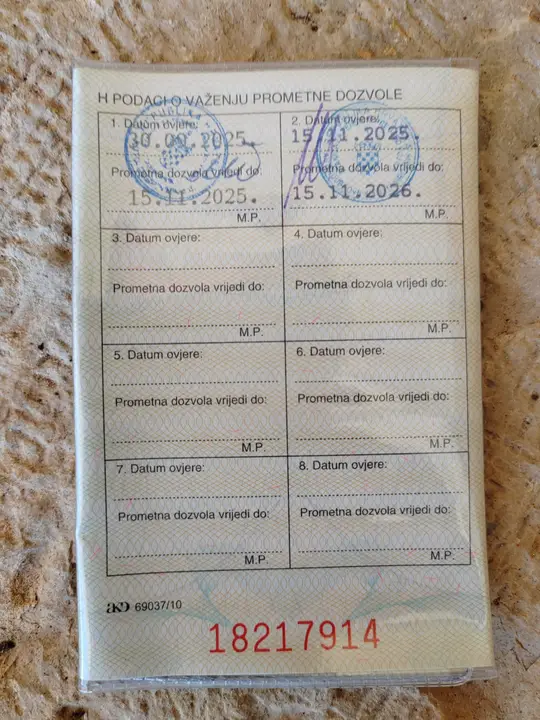 H PODACI O VAŽENJU PROMETNE DOZVOLE
1. Datum ovjere:
30.09.2025.
Prometna dozvola vrijedi do:
15.11.2025.
M.P.
2. Datum ovjere:
15.11.2025.
Prometna dozvola vrijedi do:
15.11.2026.
M.P.
3. Datum ovjere:
Prometna dozvola vrijedi do:
M.P.
4. Datum ovjere:
Prometna dozvola vrijedi do:
M.P.
5. Datum ovjere:
Prometna dozvola vrijedi do:
M.P.
6. Datum ovjere:
Prometna dozvola vrijedi do:
M.P.
7. Datum ovjere:
Prometna dozvola vrijedi do:
M.P.
8. Datum ovjere:
Prometna dozvola vrijedi do:
M.P.
akd 69037/10
18217914